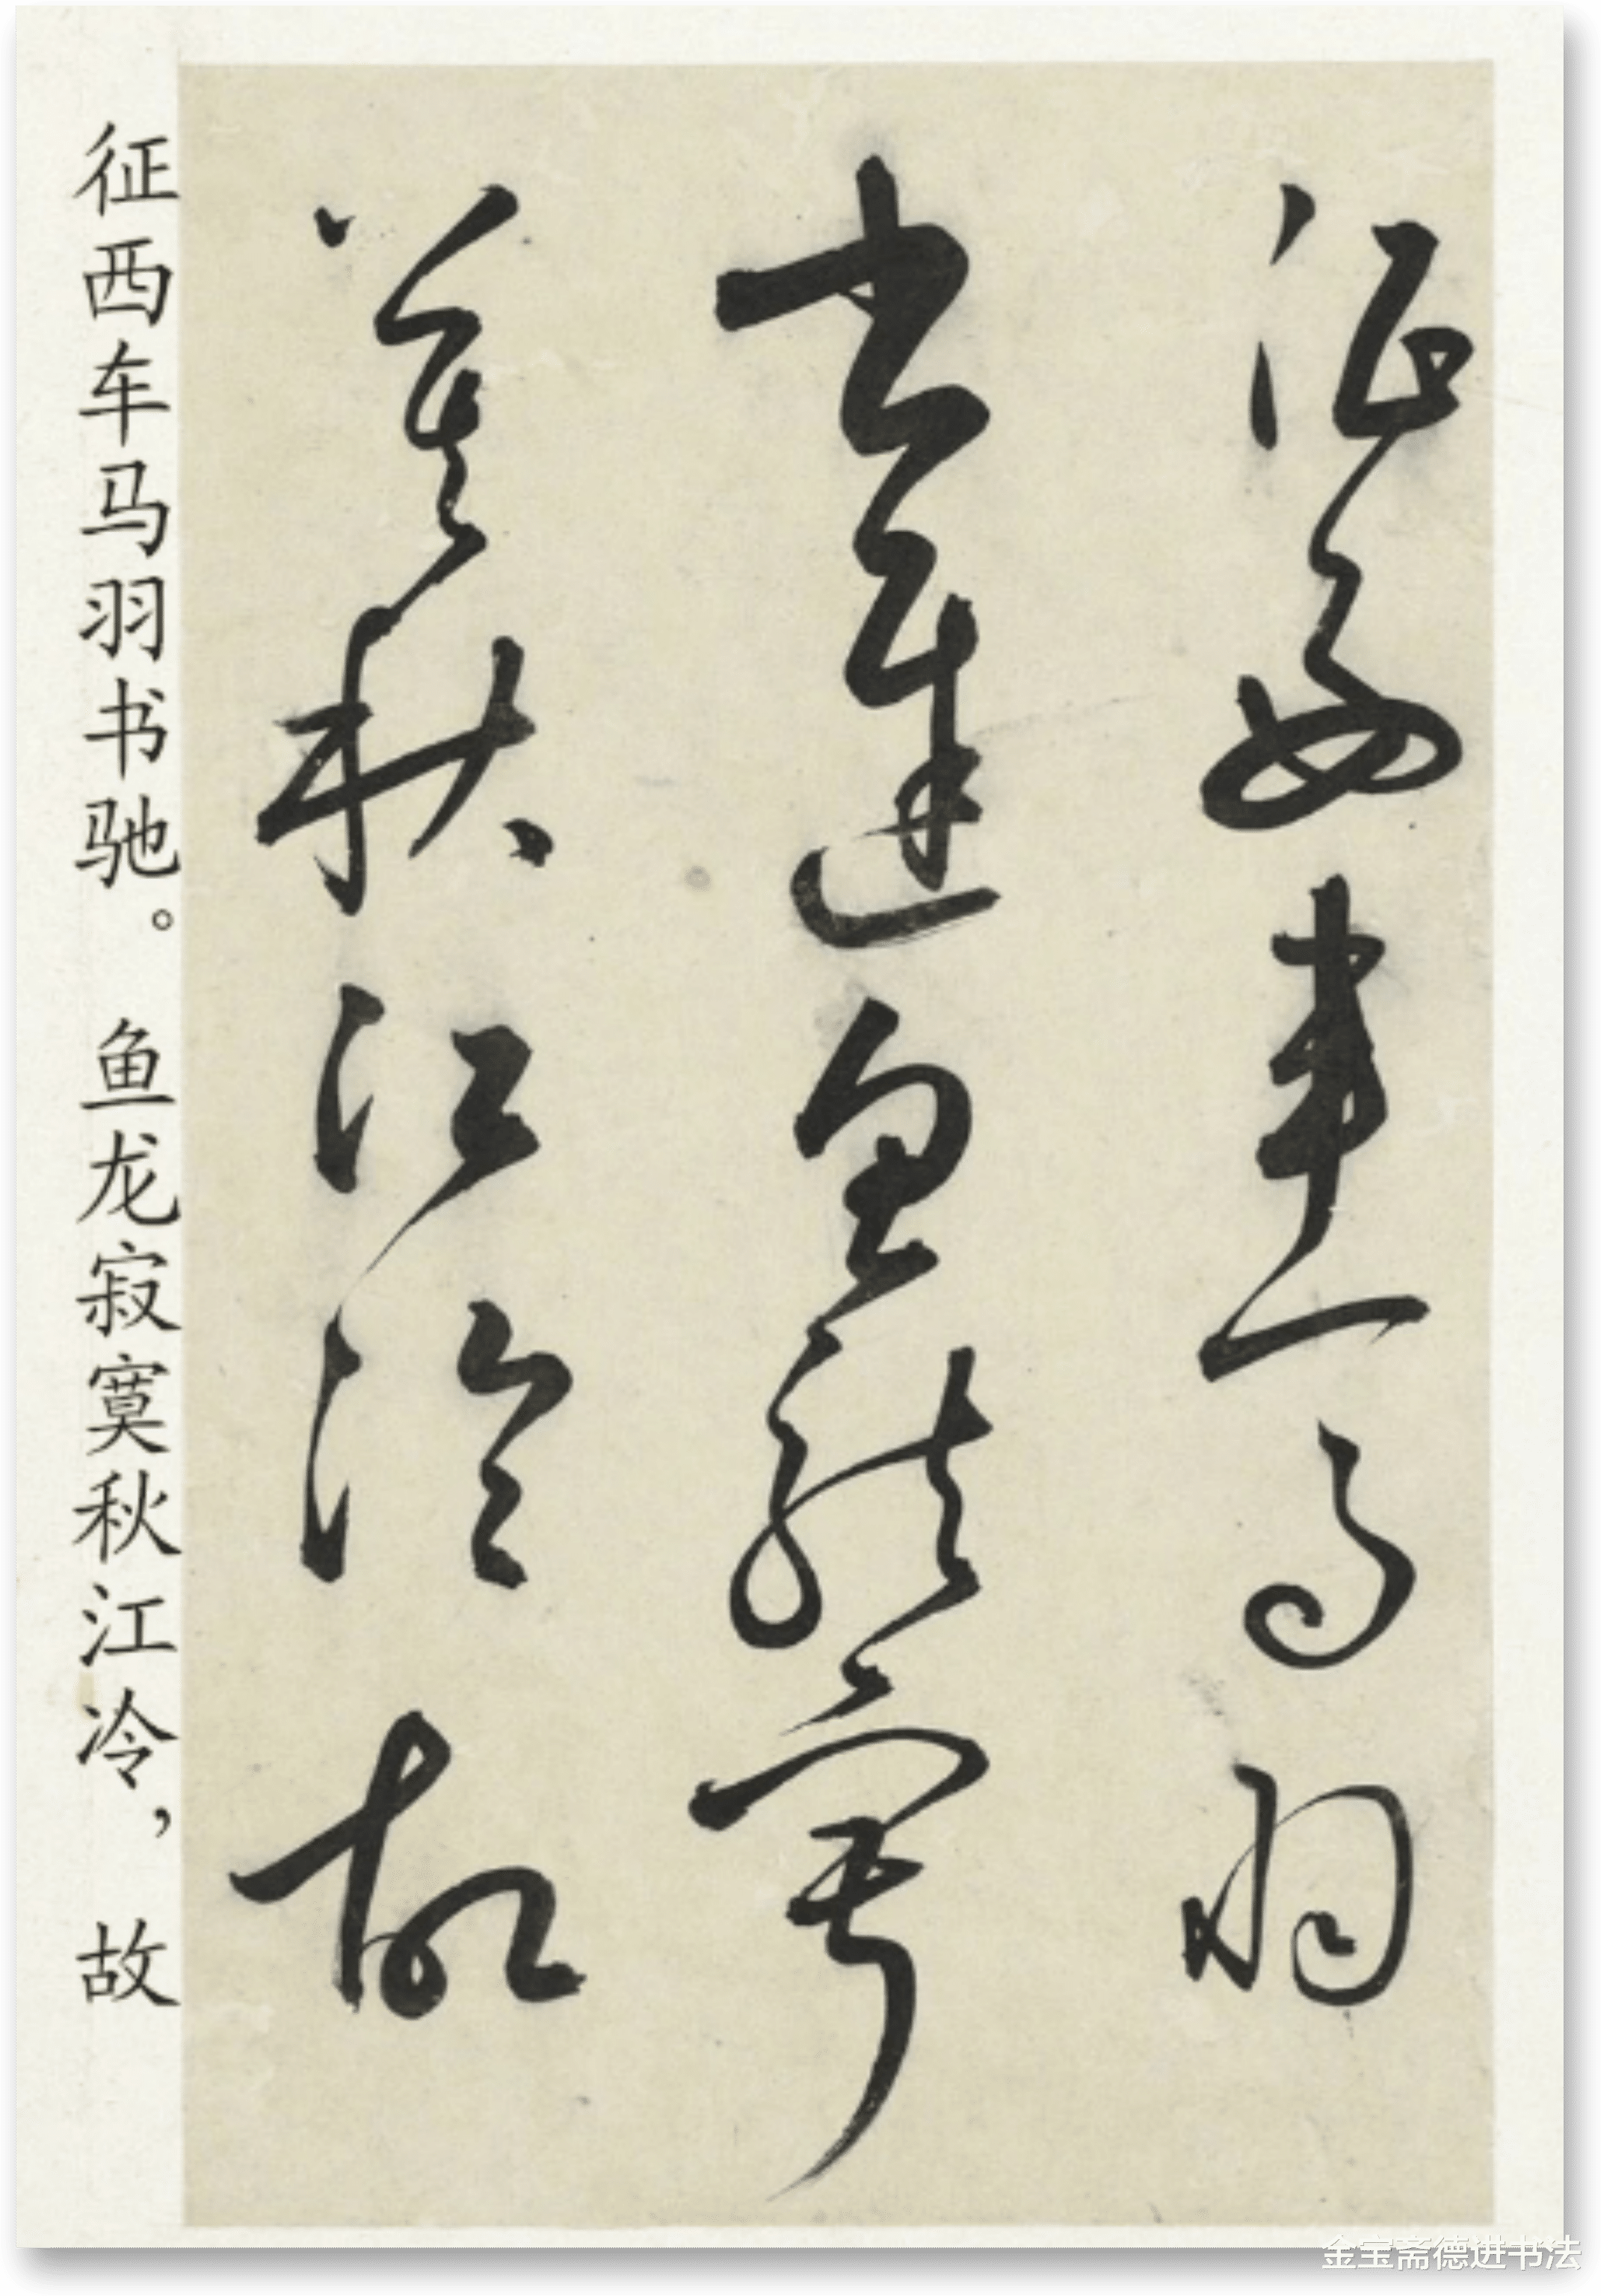 征西車馬羽
書遲魚龍寂
寞秋江冷故
征西车马羽书驰。鱼龙寂寞秋江冷，故
金宝斋德进书法